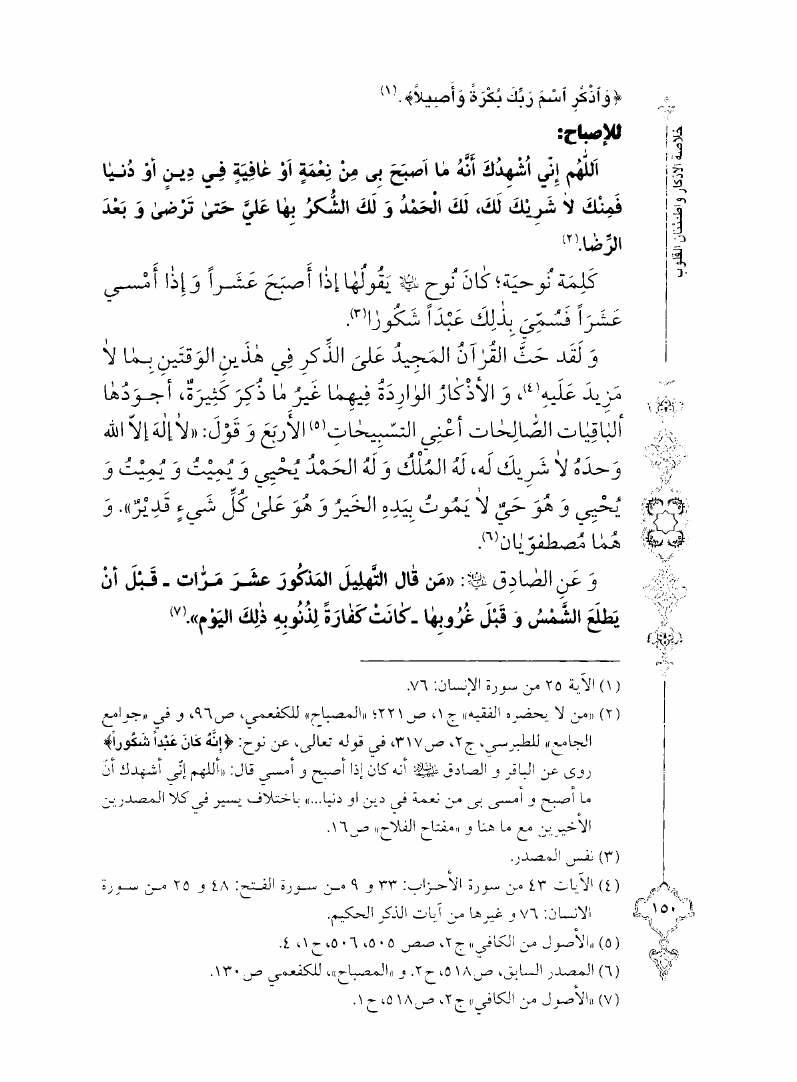 ﴿وَاَذْكُرِ اَسْمَ رَبِّكَ بُكْرَةً وَأَصِيلاً﴾.(١)
للإصباح:
اَللّٰهُم إِنّي اُشْهِدُكَ أَنَّهُ مٰا اَصبَحَ بِی مِنْ نِعْمَةٍ اَوْ عٰافِيَةٍ فِي دِيـنٍ أوْ دُنـيٰا
فَمِنْكَ لاٰ شَرِيْكَ لَكَ، لَكَ الْحَمْدُ وَ لَكَ الشُّكرُ بِهٰا عَلَيَّ حَتىٰ تَرْضىٰ وَ بَعْدَ
الرِّضٰا.(٢)
كَلِمَة نُوحيَة؛ كٰانَ نُوح ﷺ يَقُولُهٰا إذٰا أَصبَحَ عَشَـراً وَ إذٰا أَمْسـي
عَشَرَاً فَسُمِّيَ بِذٰلِكَ عَبْدَاً شَكُورٰا(٣).
وَ لَقَد حَثَّ القُرٰآنُ المَجيدُ عَلىَ الذِّكرِ فِي هٰذَينِ الوَقتَينِ بِـمٰا لاٰ
مَزِيدَ عَلَيهِ(٤)، وَ الأذْكٰارُ الوٰارِدَةُ فِيهِمٰا غَيرُ مٰا ذُكِرَ كَثِيرَةٌ، أجـوَدُهٰا
ألبَاقِيٰات الصّٰالِحٰات أَعْنِي التسّبِيحٰاتِ(٥) الأربَعَ وَ قَوْلَ: «لاٰ إلٰهَ إلاّ الله
وَحدَهُ لاٰ شَرِيكَ لَه، لَهُ المُلْكُ وَ لَهُ الحَمْدُ يُحْيي وَ يُمِيْتُ وَ يُمِيْتُ وَ
يُحْيِي وَ هُوَ حَيٌّ لاٰ يَمُوتُ بِيَدِهِ الخَيرُ وَ هُوَ عَلىٰ كُلِّ شَيءٍ قَدِيْرٌ». وَ
هُمٰا مُصطفوّيٰان(٦).
وَ عَنِ الصّٰادِق ﷺ: «مَن قٰال التَّهلِيلَ المَذكُورَ عشَـرَ مَـرّٰات ـ قَـبْلَ أنْ
يَطلَعَ الشَّمْسُ وَ قَبْلَ غُرُوبِهٰا ـ كٰانَتْ كَفٰارَةً لِذُنُوبِهِ ذٰلِكَ اليَوْم».(٧)
(١) الآية ٢٥ من سورة الإنسان: ٧٦.
(٢) «من لا يحضره الفقيه» ج١، ص٢٢١؛ «المصباح» للكفعمي، ص٩٦، و في «جوامع
الجامع» للطبرسي، ج٢، ص٣١٧، في قوله تعالى، عن نوح: ﴿إِنَّهُ كَانَ عَبْداً شَكُوراً﴾
روى عن الباقر و الصادق أنه كان إذا أصبح و أمسي قال: «أللهم إنّي أشهدك أنّ
ما أصبح و أمسى بى من نعمة في دين او دنيا...» باختلاف يسير في كلا المصدرين
الأخيرين مع ما هنا و «مفتاح الفلاح» ص١٦.
(٣) نفس المصدر.
(٤) الآيات ٤٣ من سورة الأحزاب: ٣٣ و ٩ من سورة الفتح: ٤٨ و ٢٥ من سورة
الانسان: ٧٦ و غيرها من آيات الذكر الحكيم.
(٥) «الأصول من الكافي» ج٢، صص ٥٠٥، ٥٠٦، ح١، ٤.
(٦) المصدر السابق، ص٥١٨، ح٢. و «المصباح»، للكفعمي ص١٣٠.
(٧) «الأصول من الكافي» ج٢، ص٥١٨، ح١.
خلاصة الاذكار و اطمئنان القلوب
١٥٠